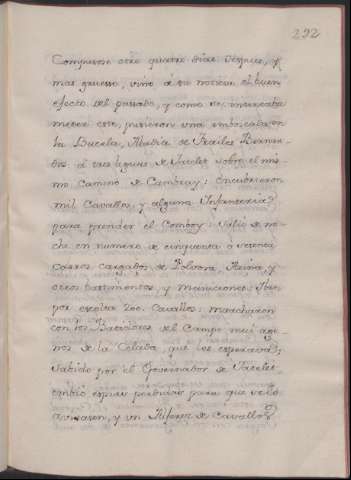 292
Compuesto otro quatro dias despues, y
mas grueso, vino á su noticia el buen
efecto del passado, y como no
meter este, pusieron una emboscada en
la Bucela, Abadia de Frailes Bernar-
dos, á tres leguas de Sacelet sobre el mis-
mo Camino de Cambray: Encubrieron
mil Cavallos, y alguna Infanteria
para prender el Comboy: Salio de no-
che en numero de cinquenta ó setenta
carros cargados de Polvora, Harina, y
otros bastimentos, y municiones: Iban
por escolta 200. Cavallos, marcharon
con los Batidores del Campo mui age-
nos de la Celada, que los esperava;
Sabido por el Governador de Sacelet
embió espias perdidas para que se lo
avisasen, y un Alferez de Cavallos